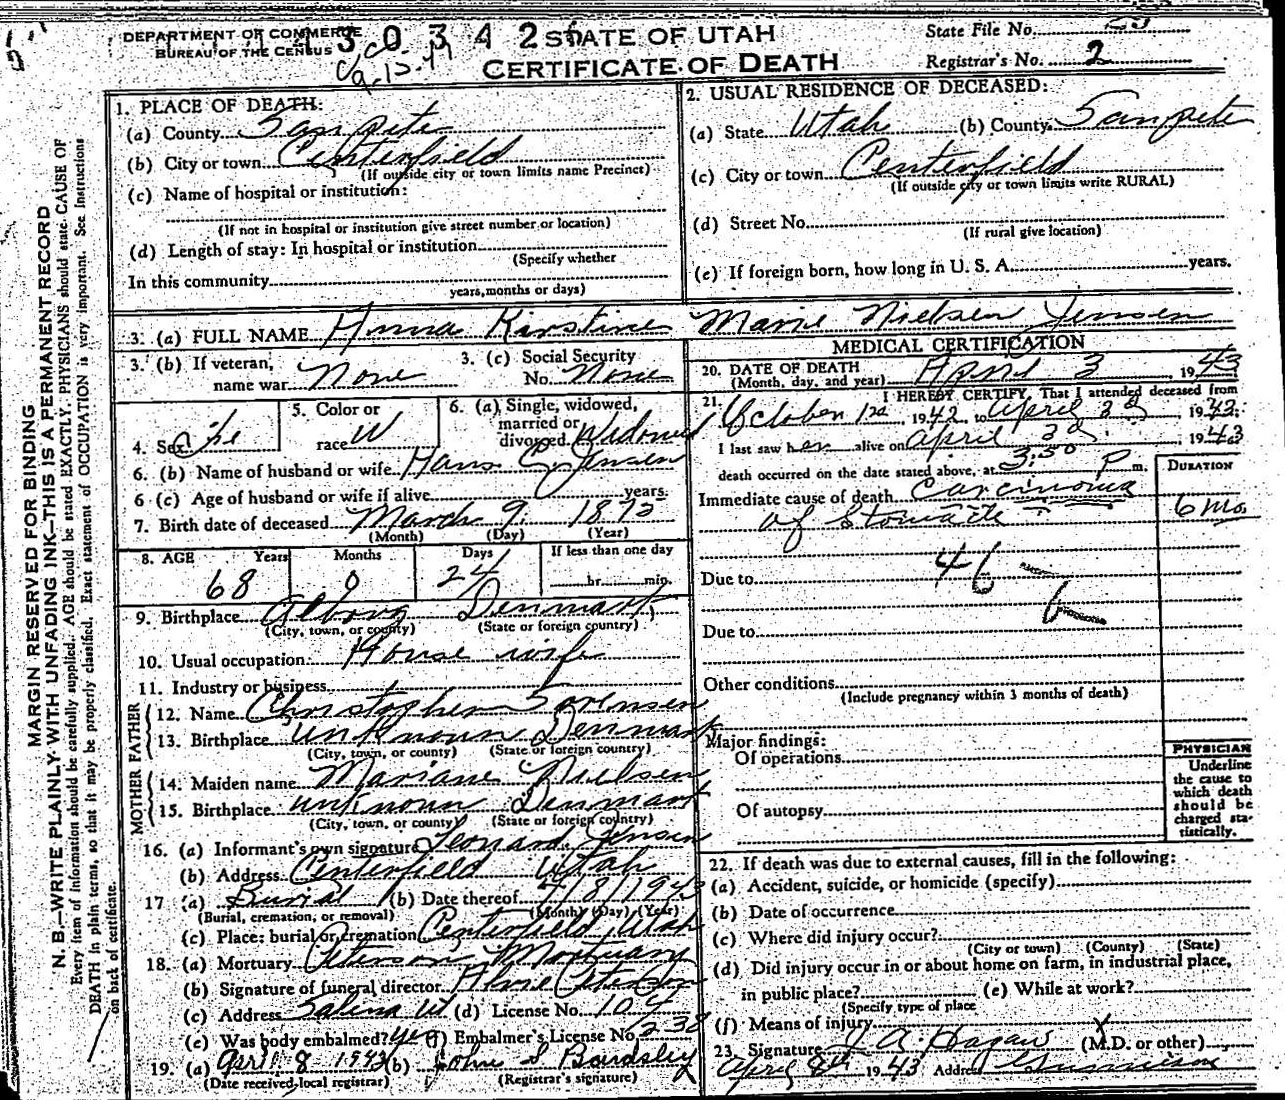 DEPARTMENT OF COMMERCE
BUREAU OF THE CENSUS
3 0 3 4 2
STATE OF UTAH
CERTIFICATE OF DEATH
State File No.
Registrar's No. 2
1. PLACE OF DEATH:
(a) County Sanpete
(b) City or town Centerfield
(If outside city or town limits name Precinct)
(c) Name of hospital or institution:
(If not in hospital or institution give street number or location)
(d) Length of stay: In hospital or institution
(Specify whether
In this community
years, months or days)
2. USUAL RESIDENCE OF DECEASED:
(a) State Utah (b) County Sanpete
(c) City or town Centerfield
(If outside city or town limits write RURAL)
(d) Street No.
(If rural give location)
(e) If foreign born, how long in U. S. A. years.
3. (a) FULL NAME Anna Kirstine Marie Nielsen Jensen
3. (b) If veteran, name war None
3. (c) Social Security No. None
4. Sex
5. Color or race W
6. (a) Single, widowed, married or divorced Widowed
6. (b) Name of husband or wife Hans C. Jensen
6 (c) Age of husband or wife if alive years.
7. Birth date of deceased March 9, 1875
(Month) (Day) (Year)
8. AGE Years Months Days If less than one day
68 0 24 hr. min.
9. Birthplace Alborg Denmark
(City, town, or county) (State or foreign country)
10. Usual occupation House wife
11. Industry or business
FATHER
12. Name Christopher Sorensen
13. Birthplace unknown Denmark
(City, town, or county) (State or foreign country)
MOTHER
14. Maiden name Mariane Nielsen
15. Birthplace unknown Denmark
(City, town, or county) (State or foreign country)
16. (a) Informant's own signature Leonard Jensen
(b) Address Centerfield Utah
17 (a) Burial (b) Date thereof 4/8/1943
(Burial, cremation, or removal) (Month) (Day) (Year)
(c) Place: burial or cremation Centerfield, Utah
18. (a) Mortuary Peterson Mortuary
(b) Signature of funeral director
(c) Address Salina Ut (d) License No. 104
(e) Was body embalmed? yes (f) Embalmer's License No. 238
19. (a) April 8 1943 (b) John S Bardsley
(Date received local registrar) (Registrar's signature)
MEDICAL CERTIFICATION
20. DATE OF DEATH
(Month, day, and year) April 3, 1943
21. I HEREBY CERTIFY, That I attended deceased from
October 1, 1942, to April 3d 1943;
I last saw her alive on April 3d, 1943
death occurred on the date stated above, at 3:50 P m.
DURATION
Immediate cause of death Carcinoma
of 6 mo.
Due to 46
Due to
Other conditions
(Include pregnancy within 3 months of death)
Major findings:
Of operations
Of autopsy
PHYSICIAN
Underline
the cause to
which death
should be
charged sta-
tistically.
22. If death was due to external causes, fill in the following:
(a) Accident, suicide, or homicide (specify)
(b) Date of occurrence
(c) Where did injury occur?
(City or town) (County) (State)
(d) Did injury occur in or about home on farm, in industrial place,
in public place? (e) While at work?
(Specify type of place
(f) Means of injury
23. Signature J A Hagan (M.D. or other)
April 8th 1943 Address Gunnison
MARGIN RESERVED FOR BINDING
N. B.—WRITE PLAINLY WITH UNFADING INK—THIS IS A PERMANENT RECORD
Every item of information should be carefully supplied. AGE should be stated EXACTLY. PHYSICIANS should state CAUSE OF
DEATH in plain terms, so that it may be properly classified. Exact statement of OCCUPATION is very important. See instructions
on back of certificate.